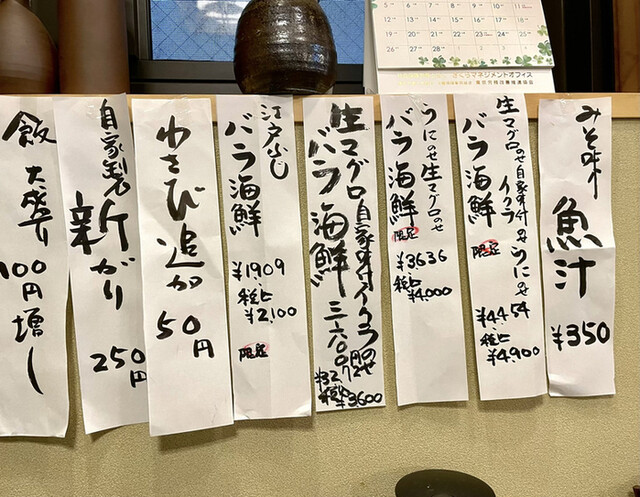 みそ味
魚汁
¥350
生マグロのせ自家味付イクラのせうにのせ
バラ海鮮
限定
¥4454
税込
¥4,900
うにのせ生マグロのせ
バラ海鮮
限定
¥3636
税込
¥4,000
生マグロ自家味付イクラのせ
バラ海鮮
三六〇〇円
¥3272
税込¥3,600
江戸ふじ
バラ海鮮
¥1909
税込
¥2,100
限定
わさび追加
50円
自家製
新がり
250円
飯大盛り
100円増し
5 6 7 8 9 10 11
12 13 14 15 16 17 18
19 20 21 22 23 24 25
26 27 28 29 30 31
さくらマネジメントオフィス